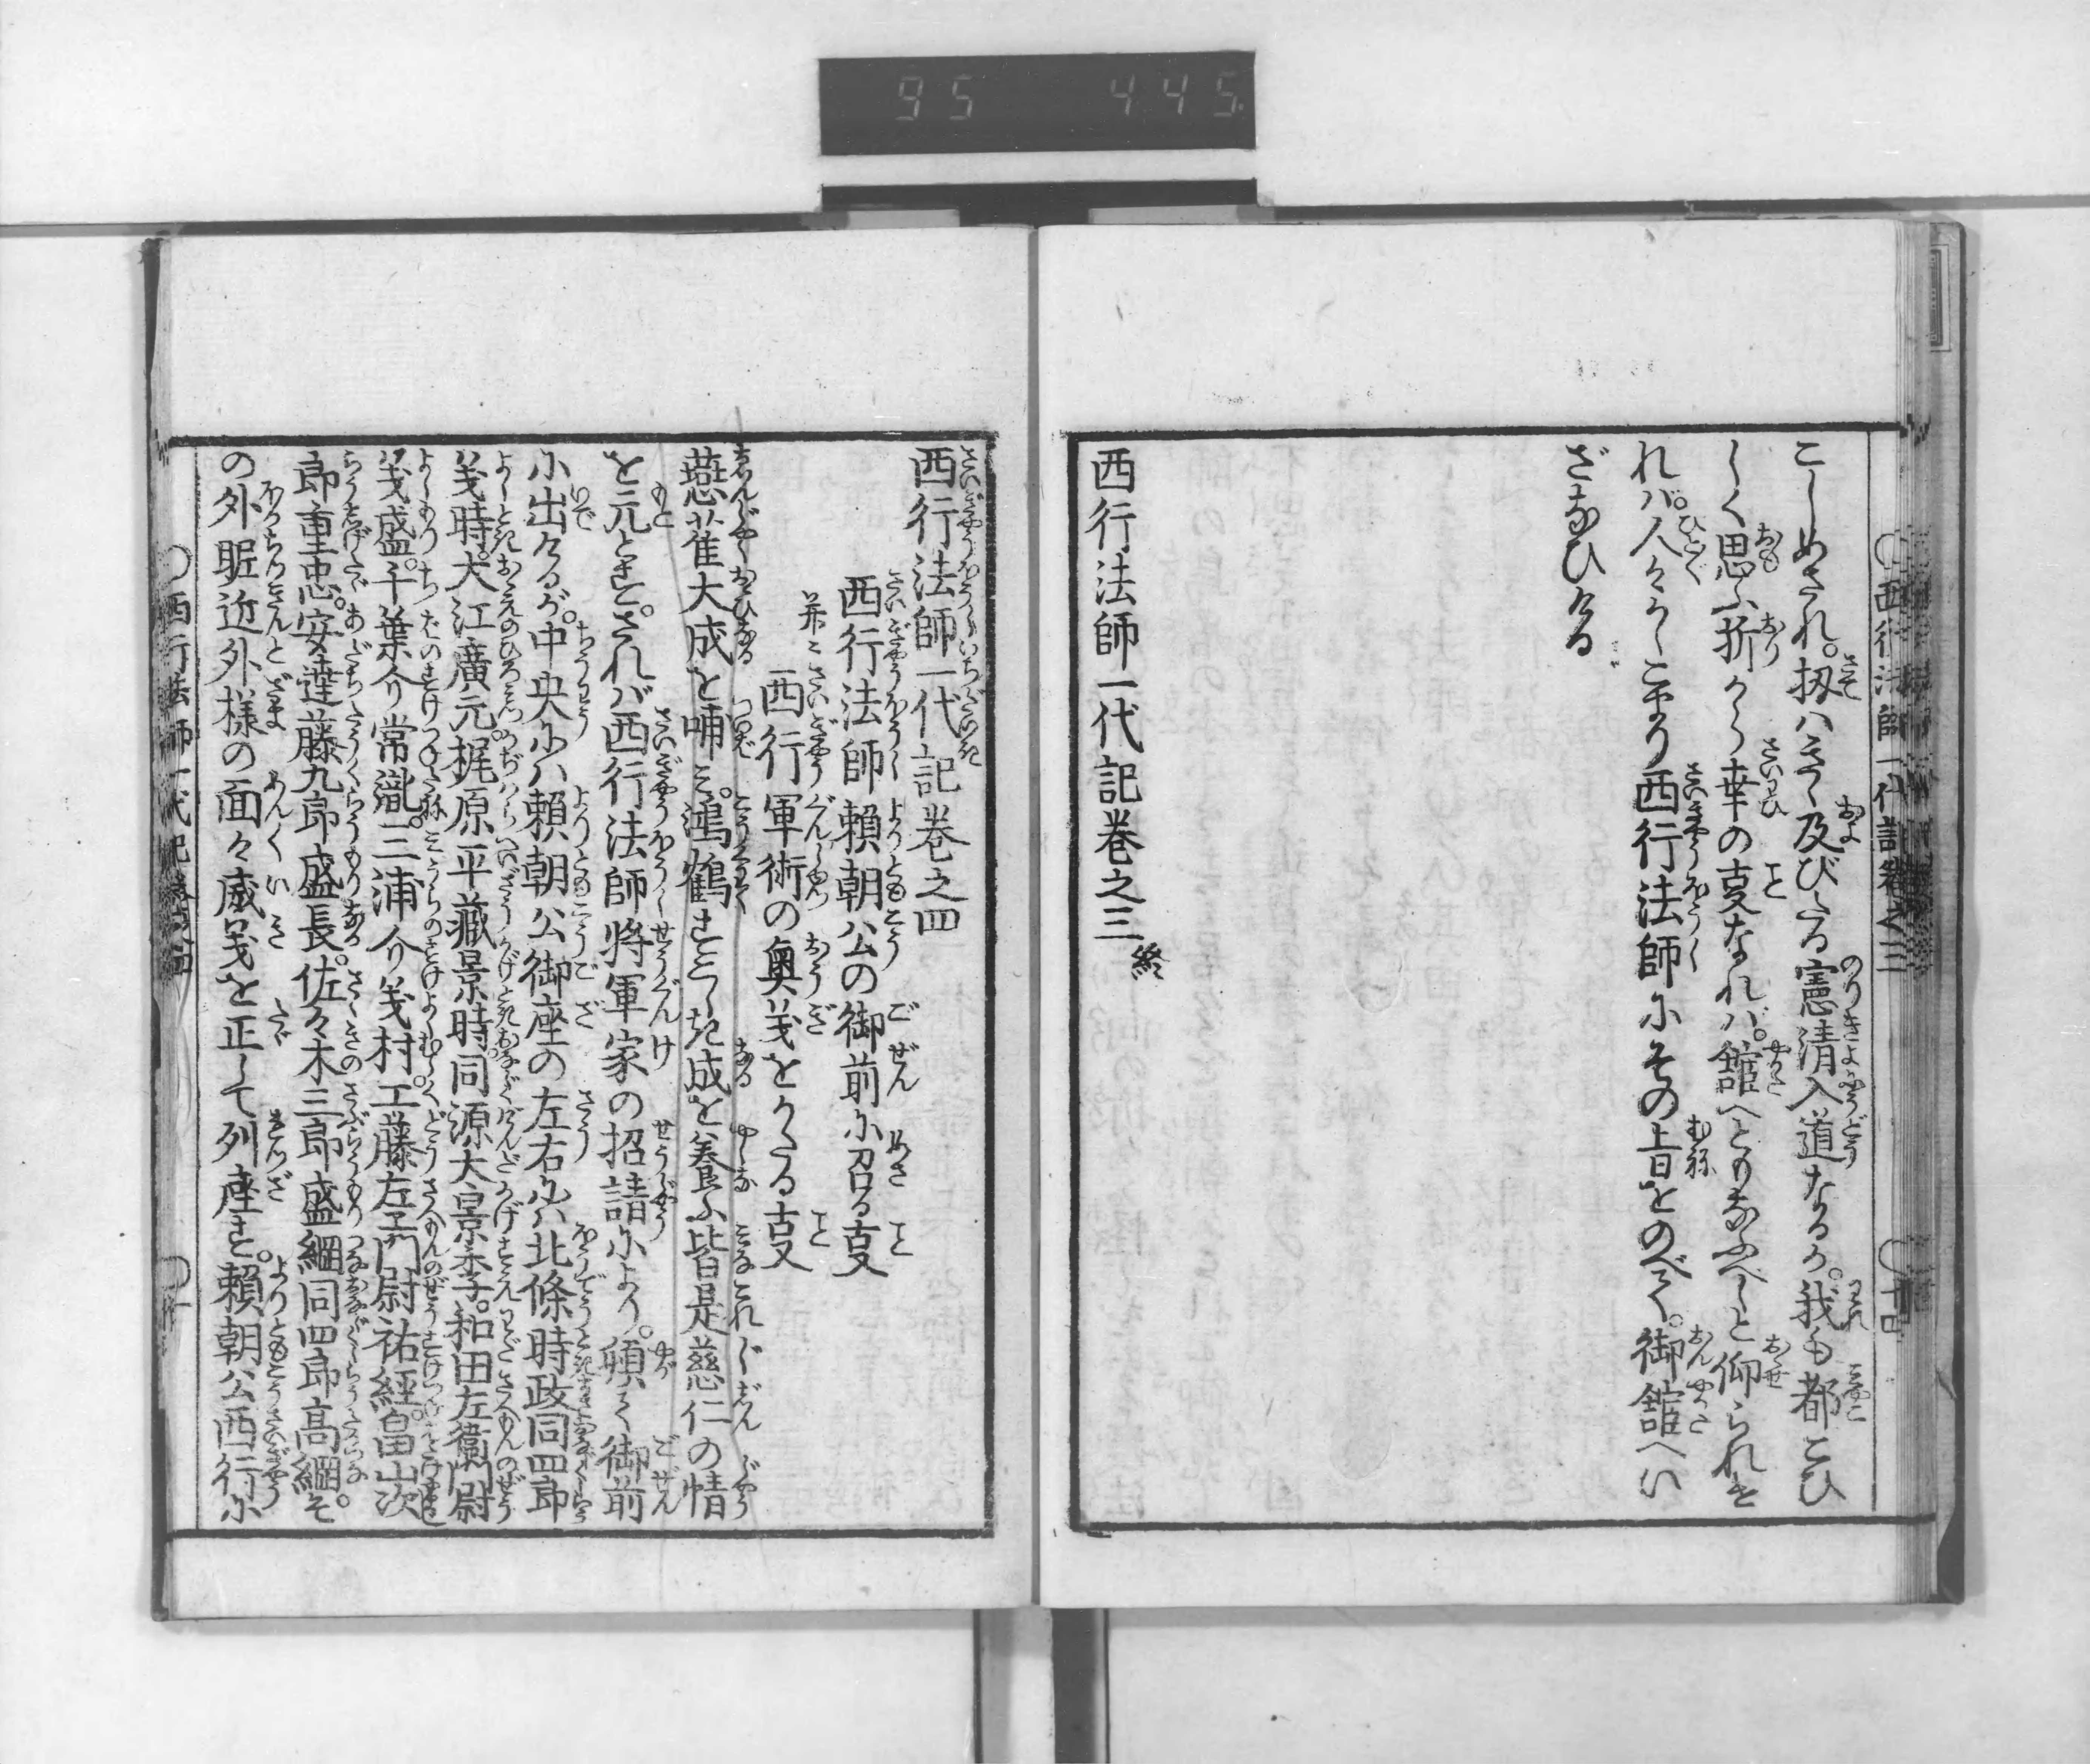 95 445
西行法師一代記巻之三
十四
こしめされ。扨ハきゝ及びたる憲清入道なるか。我も都こひ
しく思ふ折から幸の叓なれバ。舘へともなふべしと仰られけ
れバ。人々かしこまり西行法師にその旨をのべて。御舘へい
ざなひける
西行法師一代記巻之三 終
西行法師一代記巻之四
西行法師頼朝公の御前に召る叓
并ニ西行軍術の奥義をかたる叓
燕雀大成を哺ミ。鴻鶴すこしき成を養ふ皆是慈仁の情
を元とす。されバ西行法師将軍家の招請により。頓て御前
に出けるが。中央にハ頼朝公御座の左右にハ北條時政同四郎
義時。大江廣元。梶原平蔵景時。同源太景季。和田左衛門尉
義盛。千葉介常胤。三浦介義村。工藤左衛門尉祐経。畠山次
郎重忠。安達藤九郎盛長。佐々木三郎盛綱同四郎高綱。そ
の外昵近外様の面々威義を正して列座す。頼朝公西行に
西行法師一代記巻之四